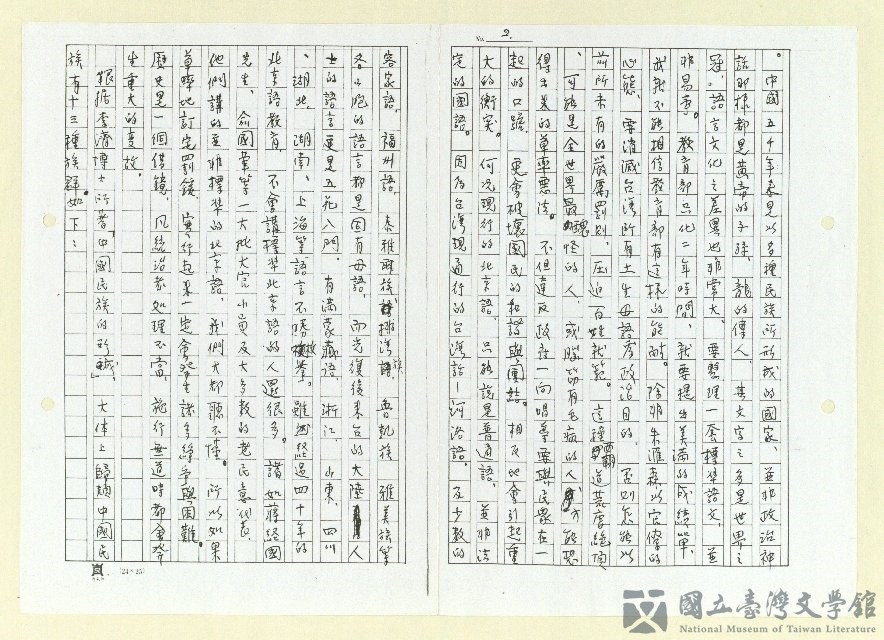 No. 2
。中國五千年來是以多種民族所形成的國家,並非政治神
話那樣都是黃帝的子孫,龍的傳人,其文字之多是世界之
冠,語言文化之差異也非常大。要整理一套標準語文,並
非易事。教育部只化二年時間,就要提出美滿的成績單,
我就不能相信教育部有這樣的能耐。除非朱滙森以官僚的
心態,要消滅台灣所有土生母語為政治目的,否則怎能以
前所未有的嚴厲罰則,压迫百姓就範。這種西朝道荒唐絕頂
、可能是全世界最醜怪的人,或腦筋有毛病的人,才能想
得出來的草率惡法。不但違反政府一向唱導要與民眾在一
起的口號,更會破壞國民的和諧與團結。相反地會引起重
大的衝突。何況現行的北京語,只能說是普通語,並非法
定的國語。因為台灣現通行的台灣話─河洛語,及少數的
客家語,福州語,泰雅爾族,排灣族,魯凱族,雅美族等
各小胞的語言都是固有母語,而光復後來台的大陸人
士的語言更是五花八門。有滿蒙藏語,浙江,山東,四川
、湖北,湖南,上海等語言不勝枚舉。雖然經過四十年的
北京語教育,不會講標準北京語的人還很多。諸如蔣經國
先生,俞國華等一大批大官小員及大多數的老民意代表,
他們講的並非標準的北京語,我們大都聽不懂。所以如果
草率地訂定罰錢,實行起來一定會發生諸多紛爭與困難。
歷史是一個借鏡,凡統治者如理不當,施行無道時都會發
生重大的变故。
根据李濟博士所著「中國民族的形成」,大体上歸類中國民
族有十三種族群如下:
(24×25)
國立臺灣文學館
National Museum of Taiwan Literature